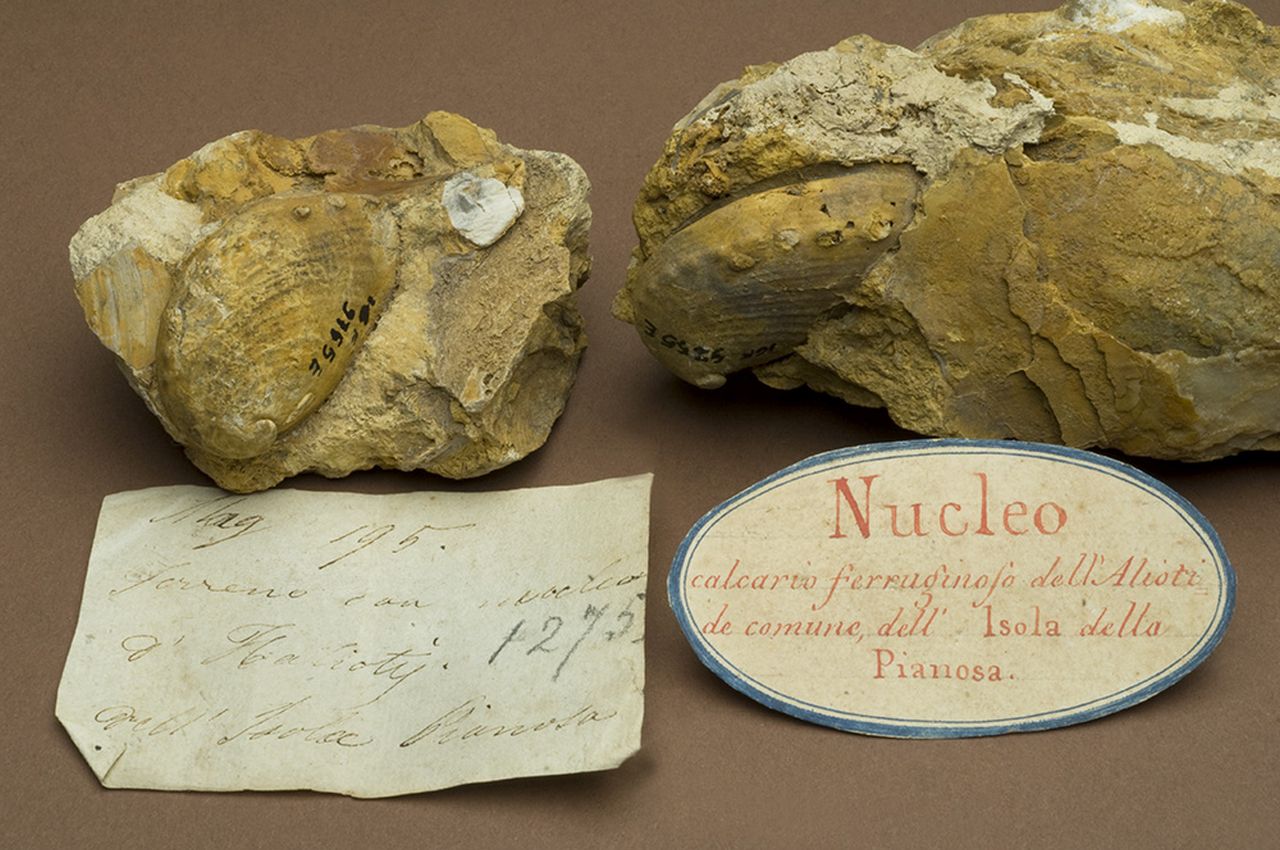 IGF
9765E
IGF
9255E
Mag 195.
Terreno con nucleo
d' Haliotij.
1273
dell' Isola Pianosa
Nucleo
calcario ferruginoſo dell'Alioti
de comune, dell' Isola della
Pianosa.